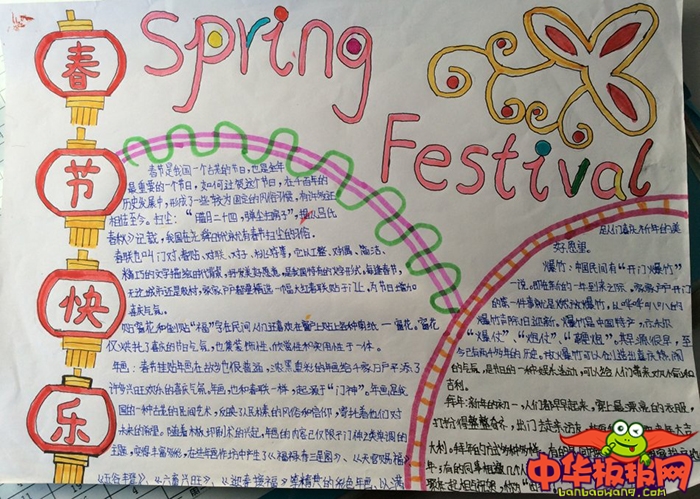 Spring
Festival
春
节
快
乐
春节是我国一个古老的节日，也是全年
最重要的一个节日，如何过贺这个节日，在千百年的
历史发展中，形成了一些较为固定的风俗习惯，有许多还
相传至今。扫尘：“腊月二十四，掸尘扫房子”，据《吕氏
春秋》记载，我国在尧舜时代就有春节扫尘的风俗。
春联也叫门对、春贴、对联、对子、桃符等，它以工整、对偶、简洁、
精巧的文字描绘时代背景，抒发美好愿望，是我国特有的文学形式，每逢春节，
无论城市还是农村，家家户户都要精选一幅大红春联贴于门上，为节日增加
喜庆气氛。
贴窗花和倒贴“福”字在民间人们还喜欢在窗户上贴上各种剪纸——窗花。窗花
不仅烘托了喜庆的节日气氛，也集装饰性、欣赏性和实用性于一体。
年画：春节挂贴年画在城乡也很普遍，浓黑重彩的年画给千家万户平添了
许多兴旺欢乐的喜庆气氛。年画，也和春联一样，起源于“门神”。年画是我
国的一种古老的民间艺术，反映了人民朴素的风俗和信仰，寄托着他们对
未来的希望。随着木板印刷术的兴起，年画的内容已不仅限于门神之类单调的
主题，变得丰富多彩，在一些年画作坊中产生了《福禄寿三星图》、《天官赐福》
《五谷丰登》、《六畜兴旺》、《迎春接福》等精典的彩色年画、以满
是人们喜庆祈年的美
好愿望。
爆竹：中国民间有“开门爆竹”
一说。即在新的一年到来之际，家家户户开门
的第一件事就是燃放爆竹，以哔哔叭叭的
爆竹声除旧迎新。爆竹是中国特产，亦称
“爆仗”、“炮仗”、“鞭炮”。其起源很早，至
今已有两千多年的历史。放爆竹可以创造出喜庆热闹
的气氛，是节日的一种娱乐活动，可以给人们带来欢愉和
吉利。
拜年：新年的初一，人们都早早起来，穿上最漂亮的衣服，
打扮得整整齐齐，出门去走亲访友，
中华板报网
banbaowang.com